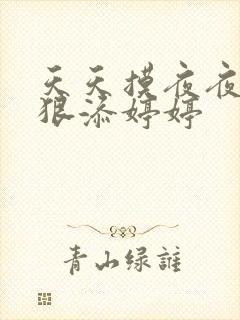 天天摸夜夜
狠添婷婷
青山绿誰